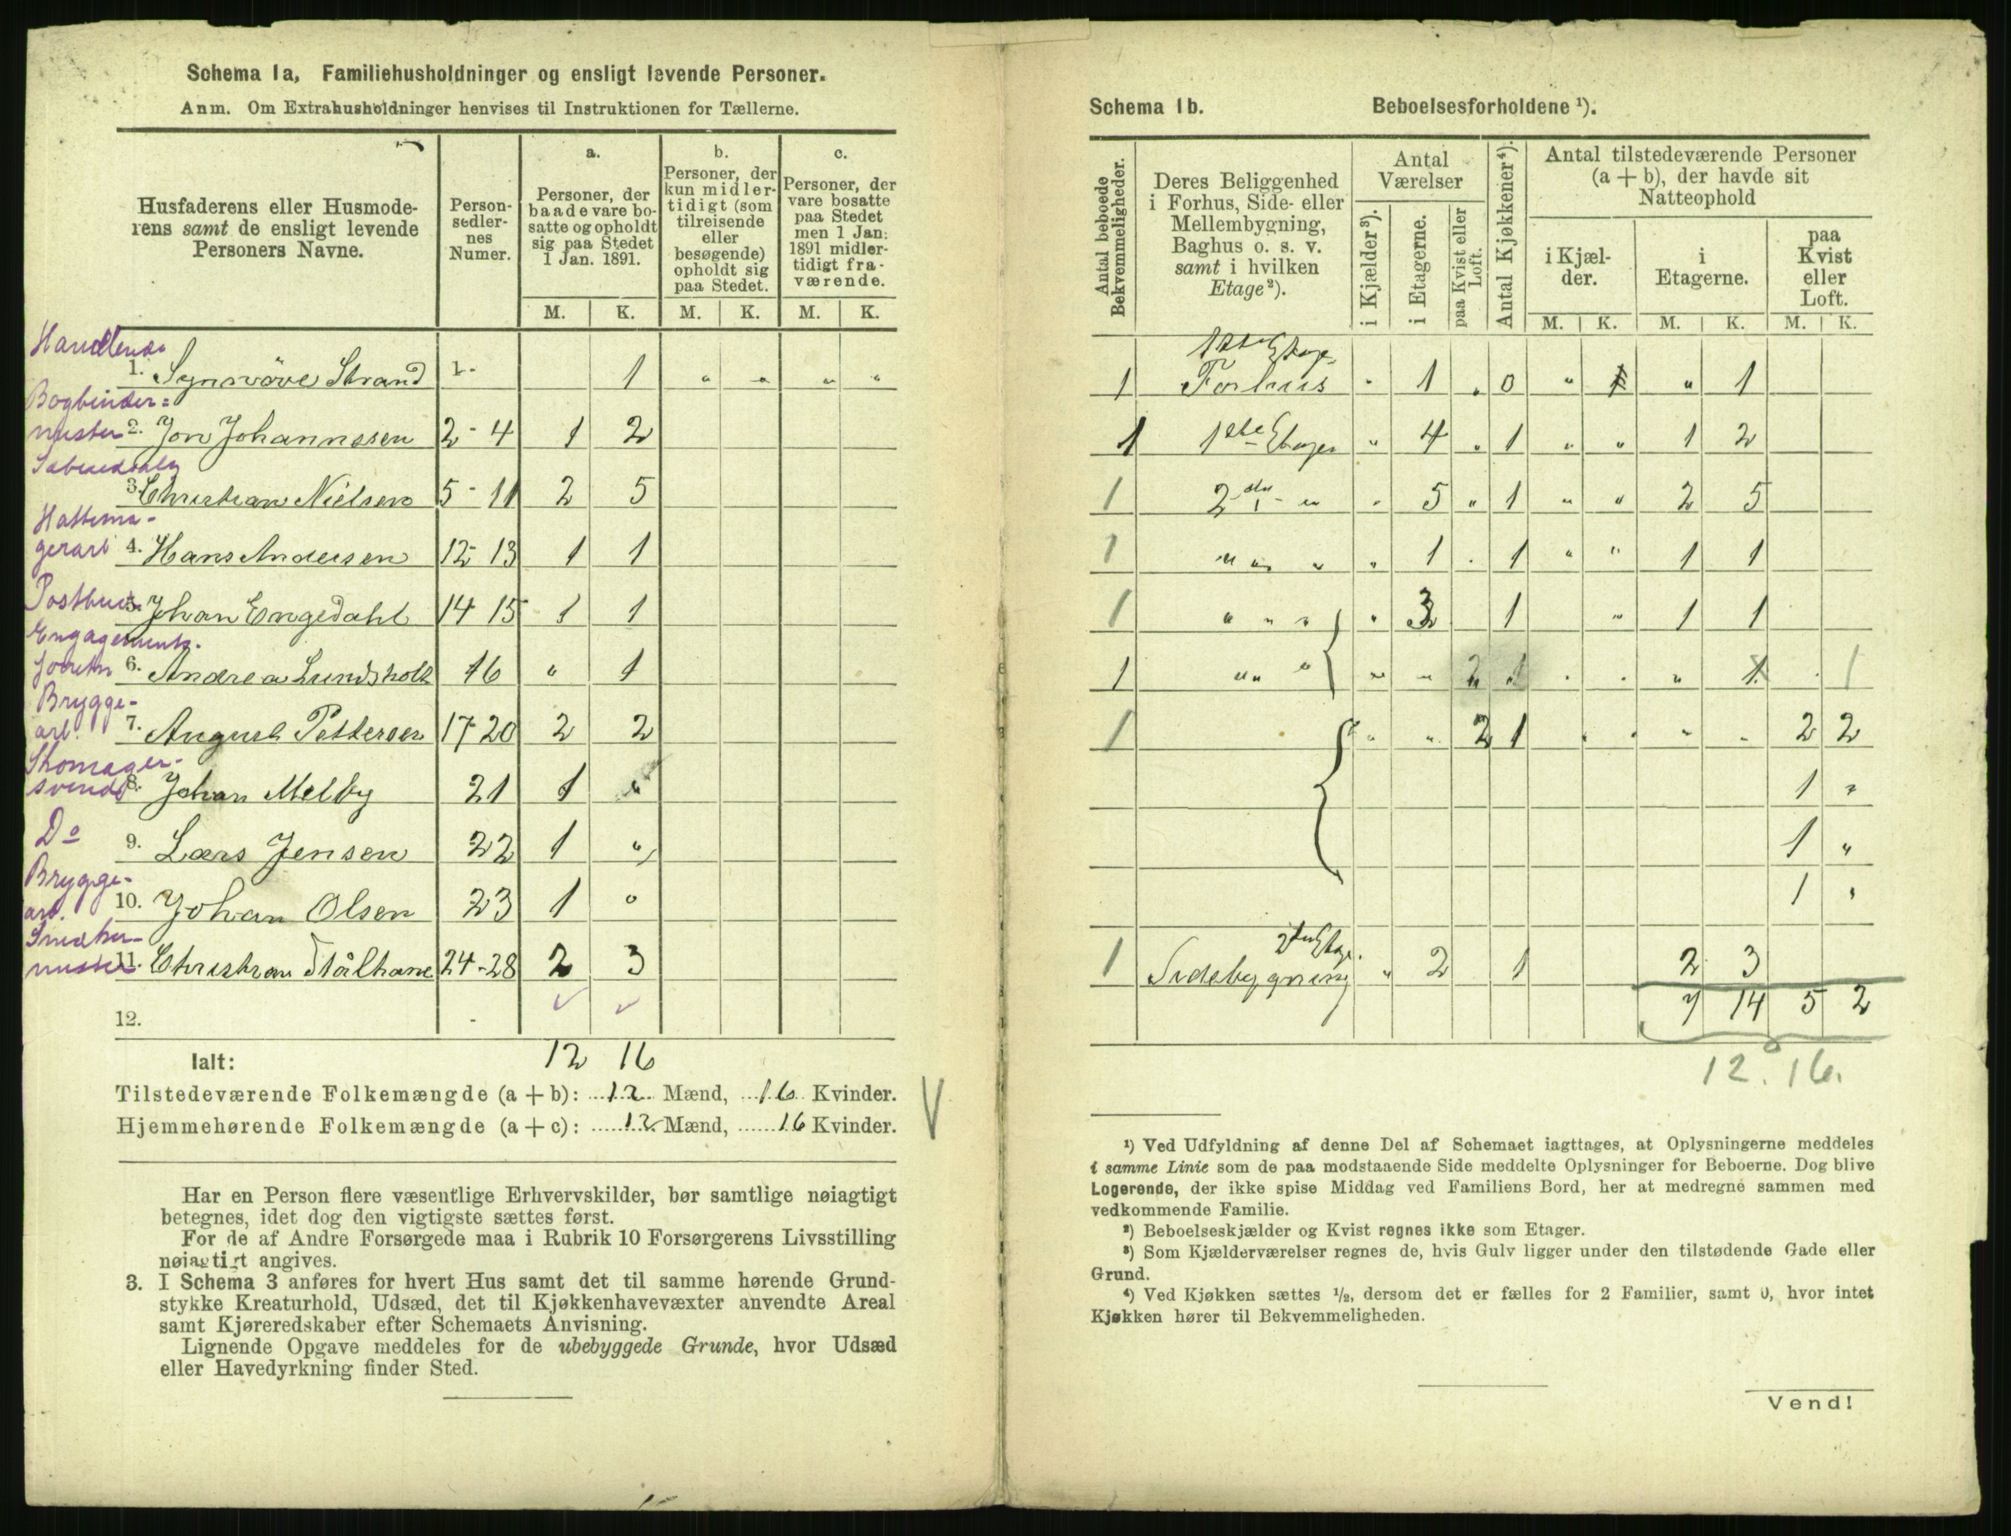 Schema 1a, Familiehusholdninger og ensligt levende Personer.
Anm. Om Extrahusholdninger henvises til Instruktionen for Tællerne.
Husfaderens eller Husmoderens samt de ensligt levende Personers Navne.
Person-sedlernes Numer.
a. Personer, der baade vare bosatte og opholdt sig paa Stedet 1 Jan. 1891.
b. Personer, der kun midlertidigt (som tilreisende eller besøgende) opholdt sig paa Stedet.
c. Personer, der vare bosatte paa Stedet men 1 Jan. 1891 midlertidigt fraværende.
M. K. M. K. M. K.
Handlende
1. Synnøve Strand 1- 1 " " " "
Bogbinder=
mester 2. Jon Johannssen 2-4 1 2
3. Christian Nielsen 5-11 2 5
Hattema-
gerarb 4. Hans Andersen 12-13 1 1
5. Johan Engedahl 14-15 1 1
Engagements.
6. Andrea Lundsholt 16 " 1
Brygge-
arb. 7. August Pettersen 17-20 2 2
Skomager-
svend 8. Johan Melby 21 1 "
Do 9. Lars Jensen 22 1 "
Brygge-
arb. 10. Johan Olsen 23 1 "
Snedker-
mester 11. Christian Stålhane 24-28 2 3
12.
Ialt: 12 16
Tilstedeværende Folkemængde (a + b): 12 Mænd, 16 Kvinder.
Hjemmehørende Folkemængde (a + c): 12 Mænd, 16 Kvinder.
Har en Person flere væsentlige Erhvervskilder, bør samtlige nøiagtigt
betegnes, idet dog den vigtigste sættes først.
For de af Andre Forsørgede maa i Rubrik 10 Forsørgerens Livsstilling
nøiagtigt angives.
3. I Schema 3 anføres for hvert Hus samt det til samme hørende Grund-
stykke Kreaturhold, Udsæd, det til Kjøkkenhavevæxter anvendte Areal
samt Kjøreredskaber efter Schemaets Anvisning.
Lignende Opgave meddeles for de ubebyggede Grunde, hvor Udsæd
eller Havedyrkning finder Sted.
Schema 1b. Beboelsesforholdene ¹).
Antal beboede Bekvemmeligheder.
Deres Beliggenhed i Forhus, Side- eller Mellembygning, Baghus o. s. v. samt i hvilken Etage²).
Antal Værelser
i Kjælder³).
i Etagerne.
paa Kvist eller Loft.
Antal Kjøkkener⁴).
Antal tilstedeværende Personer (a + b), der havde sit Natteophold
i Kjælder.
i Etagerne.
paa Kvist eller Loft.
M. K. M. K. M. K.
1ste Etage
1 Forhus " 1 " 0 " 1 " 1
1 1ste Etager " 4 " 1 " " 1 2
1 2den " " 5 " 1 " " 2 5
1 " " " " 1 . 1 " " 1 1
1 " " " " 3 1 " 1 1
1 " " " " " 2 1 . . " 1 . 1
1 " " 2 1 . . " " 2 2
1 "
1 "
1 "
2den Etage.
1 Sidebygning " 2 1 2 3
7 14 5 2
12. 16.
¹) Ved Udfyldning af denne Del af Schemaet iagttages, at Oplysningerne meddeles
i samme Linie som de paa modstaaende Side meddelte Oplysninger for Beboerne. Dog blive
Logerende, der ikke spise Middag ved Familiens Bord, her at medregne sammen med
vedkommende Familie.
²) Beboelseskjælder og Kvist regnes ikke som Etager.
³) Som Kjælderværelser regnes de, hvis Gulv ligger under den tilstødende Gade eller
Grund.
⁴) Ved Kjøkken sættes ½, dersom det er fælles for 2 Familier, samt 0, hvor intet
Kjøkken hører til Bekvemmeligheden.
Vend!